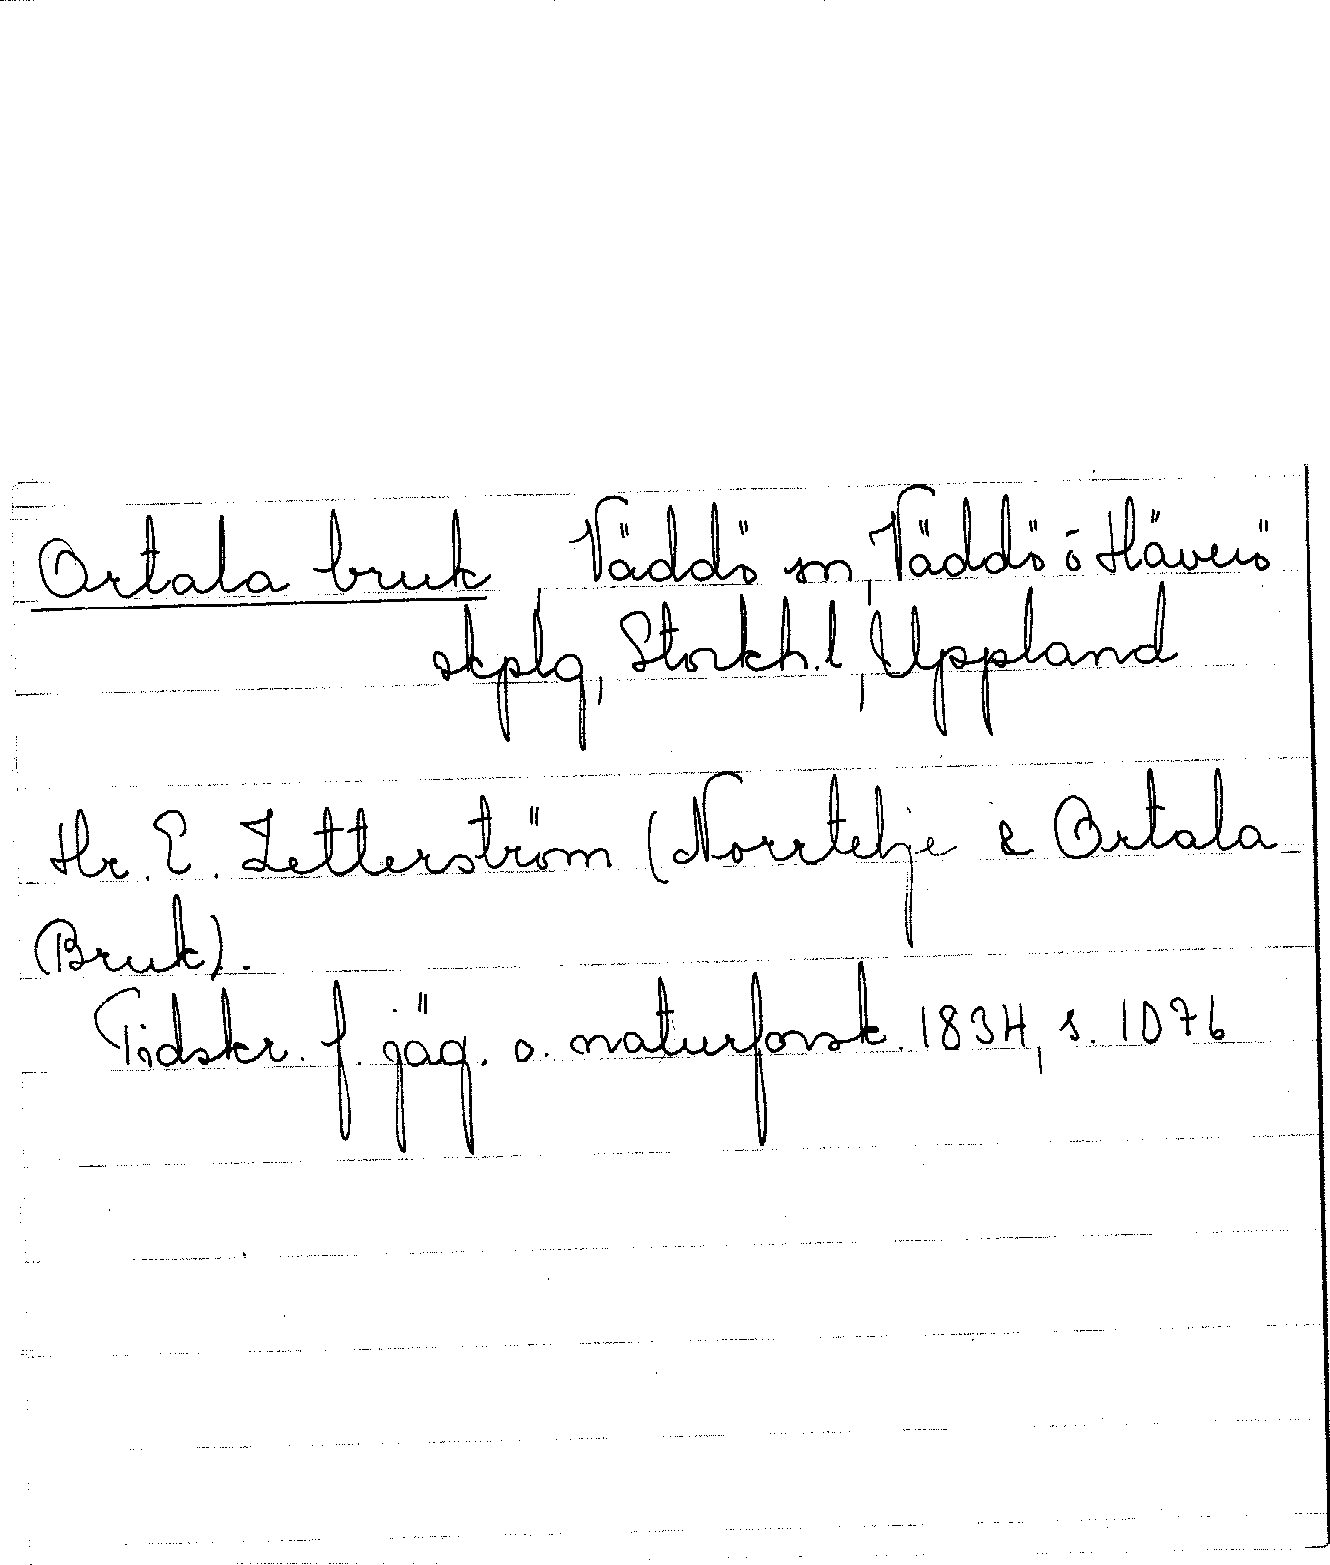 Ortala bruk, Väddö sn, Väddö ō Häverö
skplg, Stockh. l, Uppland
Hr. E. Zetterström (Norrtelje & Ortala
Bruk).
Tidskr. f. jäg. o. naturforsk. 1834, s. 1076